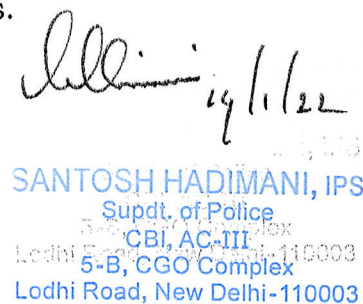 s.
19/1/22
SANTOSH HADIMANI, IPS
Supdt. of Police
CBI, AC-III
5-B, CGO Complex
Lodhi Road, New Delhi-110003